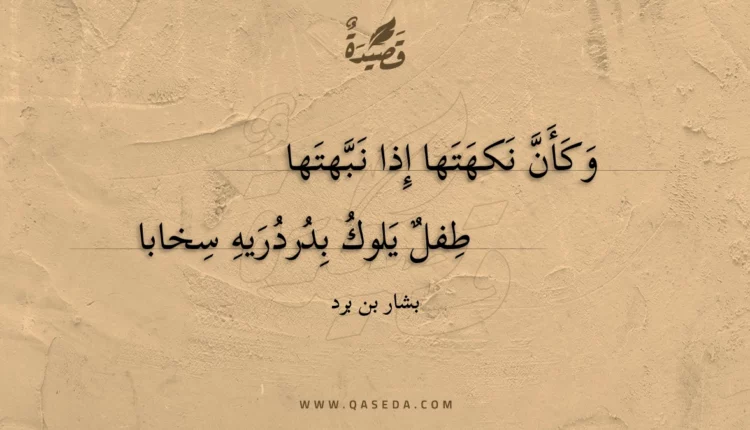 قَصِيْدَةٌ
وَكَأَنَّ نَكهَتَها إِذا نَبَّهتَها
طِفلٌ يَلوكُ بِدُردُرَيهِ سِخابا
بشار بن برد
WWW.QASEDA.COM